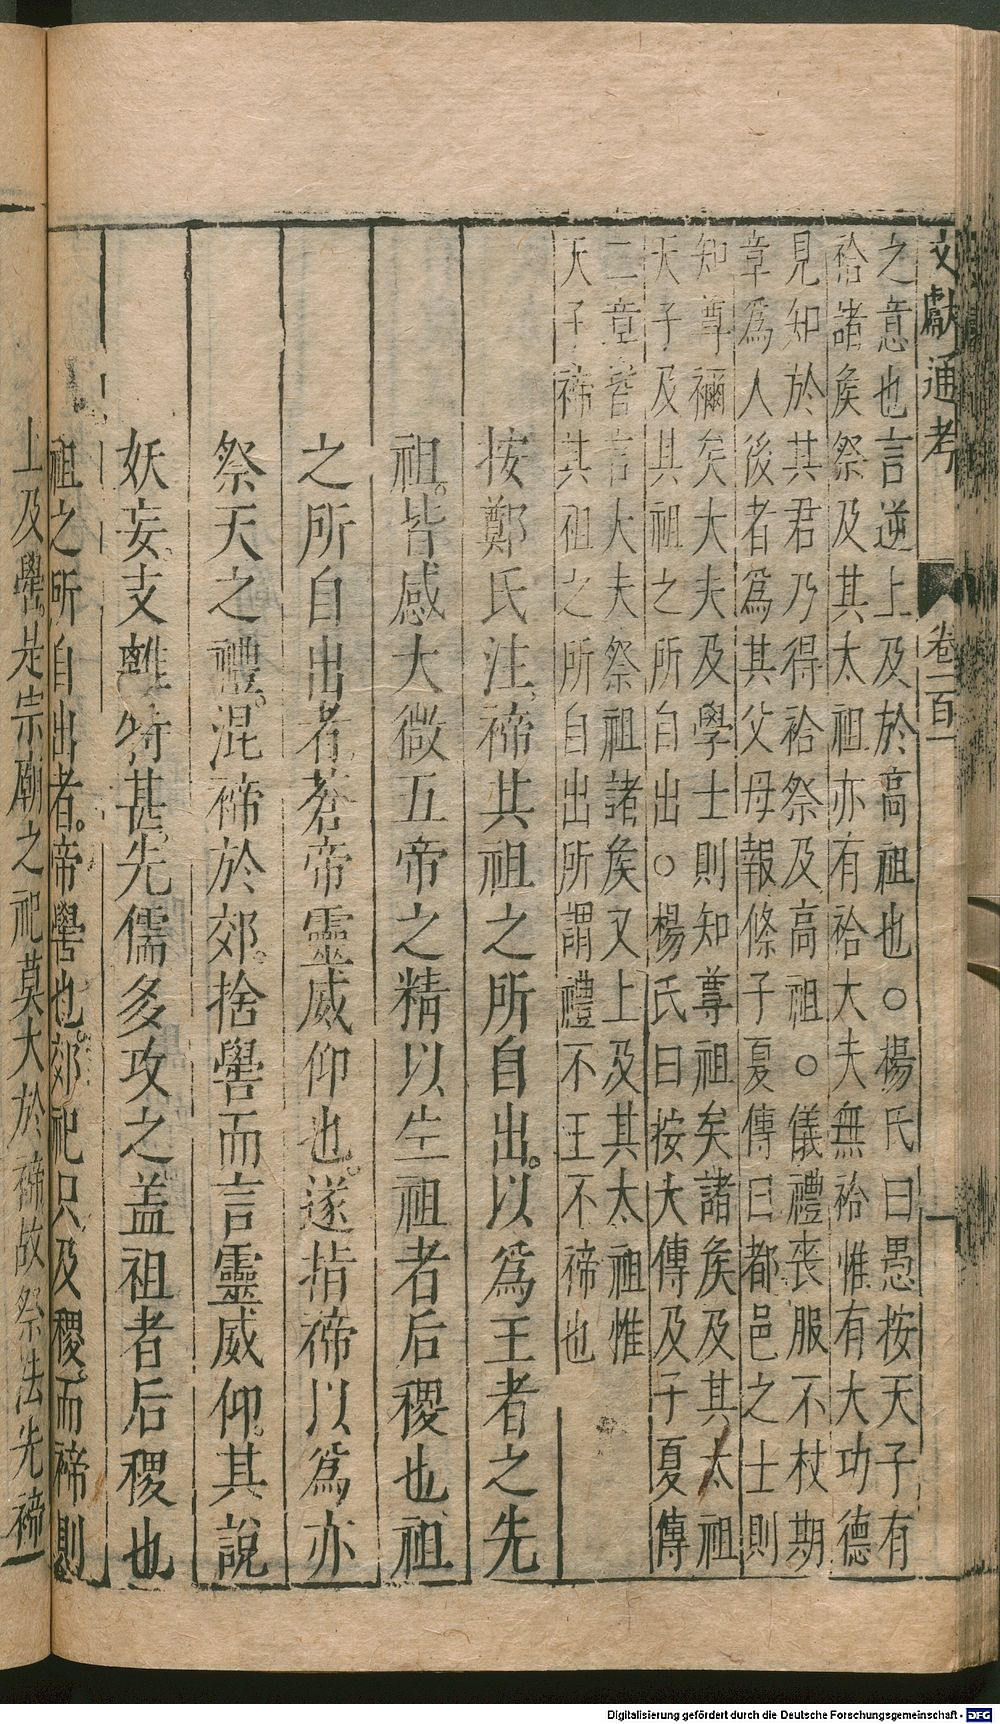 文獻通考 卷一百一
之意也言逆上及於高祖也○楊氏曰愚按天子有
祫諸矦祭及其太祖亦有祫大夫無祫惟有大功德
見知於其君乃得祫祭及高祖○儀禮喪服不杖期
章爲人後者爲其父母報條子夏傳曰都邑之士則
知尊禰矣大夫及學士則知尊祖矣諸矦及其太祖
天子及其祖之所自出○楊氏曰按大傳及子夏傳
二章皆言大夫祭祖諸矦又上及其太祖惟
天子禘其祖之所自出所謂禮不王不禘也
按鄭氏注禘其祖之所自出以爲王者之先
祖皆感大微五帝之精以生祖者后稷也祖
之所自出者蒼帝靈威仰也遂指禘以爲亦
祭天之禮混禘於郊捨嚳而言靈威仰其說
妖妄支離特甚先儒多攻之盖祖者后稷也
祖之所自出者帝嚳也郊祀只及稷而禘則
上及嚳是宗廟之祀莫大於禘故祭法先禘
Digitalisierung gefördert durch die Deutsche Forschungsgemeinschaft - DFG